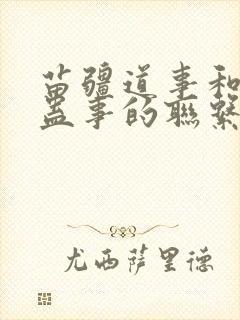 苗疆道事和
蛊事的聯繫
尤西薩里德